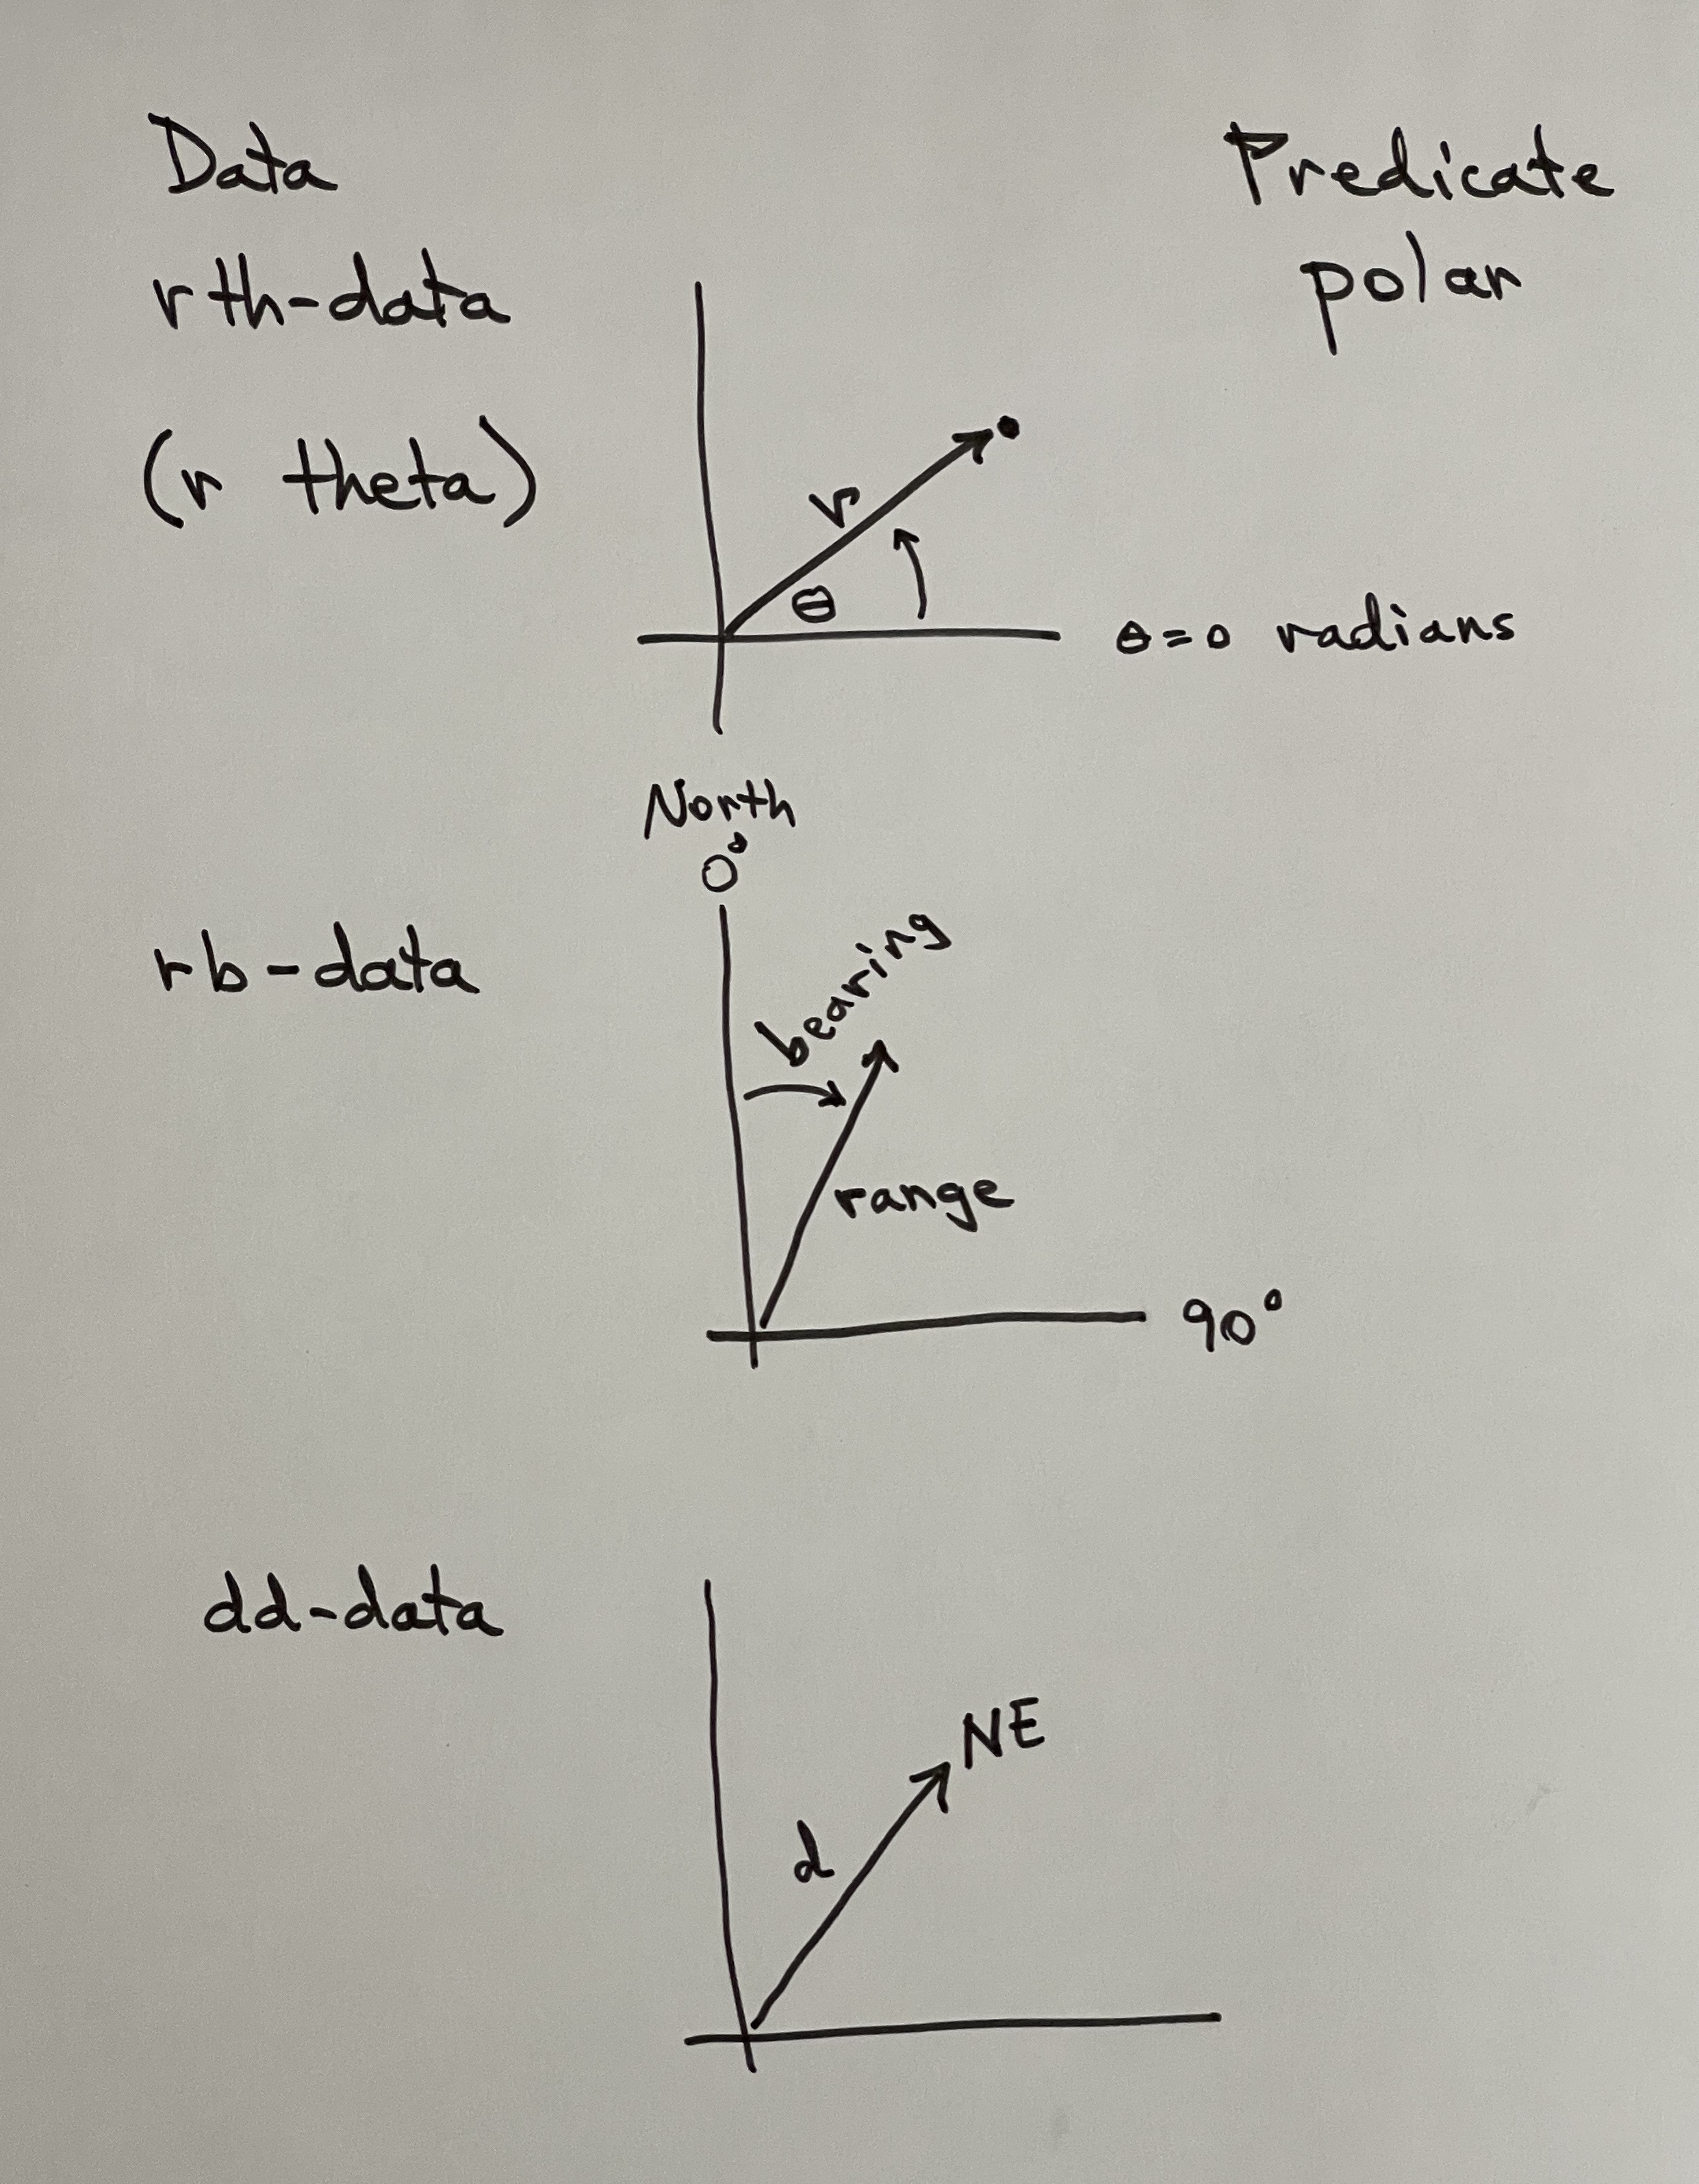 Data
Predicate
rth-data
polar
(r theta)
r
θ
θ=0 radians
North
0°
rb-data
bearing
range
90°
dd-data
NE
d